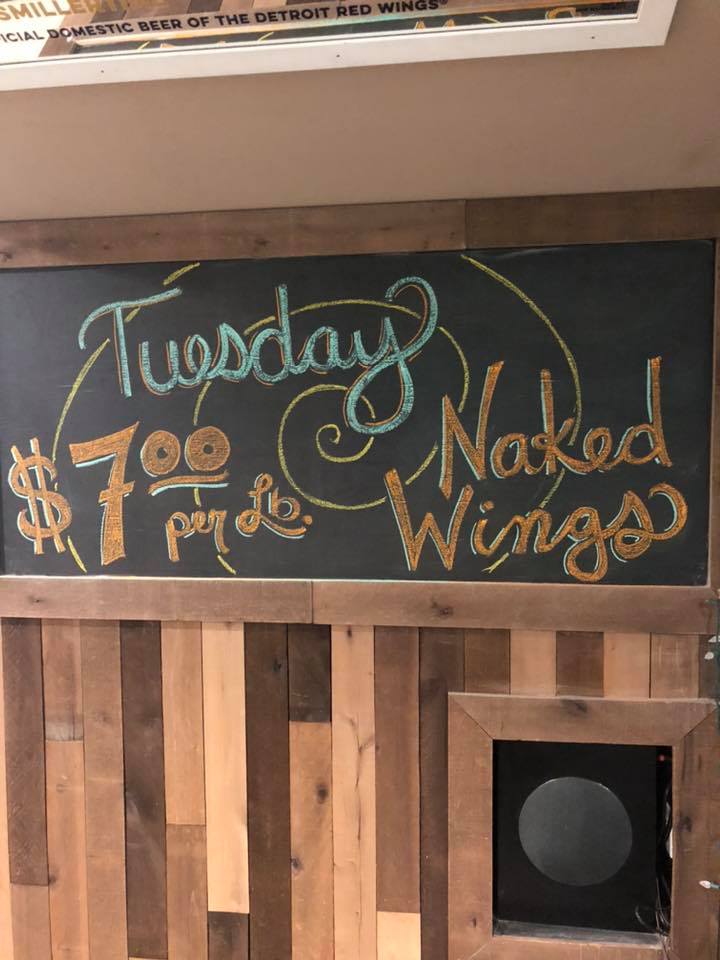 SMILLER
ICIAL DOMESTIC BEER OF THE DETROIT RED WINGS®
Tuesday
$7.00
per Lb.
Naked
Wings